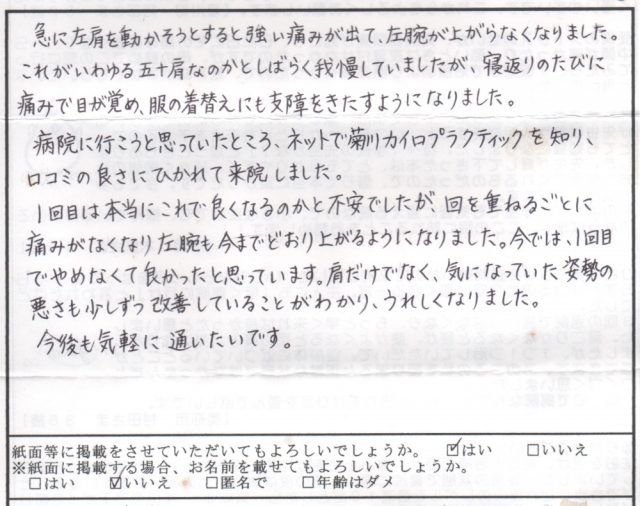 急に左肩を動かそうとすると強い痛みが出て、左腕が上がらなくなりました。
これがいわゆる五十肩なのかとしばらく我慢していましたが、寝返りのたびに
痛みで目が覚め、服の着替えにも支障をきたすようになりました。
病院に行こうと思っていたところ、ネットで菊川カイロプラクティックを知り、
口コミの良さにひかれて来院しました。
1回目は本当にこれで良くなるのかと不安でしたが、回を重ねるごとに
痛みがなくなり左腕も今までどおり上がるようになりました。今では、1回目
でやめなくて良かったと思っています。肩だけでなく、気になっていた姿勢の
悪さも少しずつ改善していることがわかり、うれしくなりました。
今後も気軽に通いたいです。
紙面等に掲載をさせていただいてもよろしいでしょうか。 ☑はい □いいえ
※紙面に掲載する場合、お名前を載せてもよろしいでしょうか。
□はい ☑いいえ □匿名で □年齢はダメ